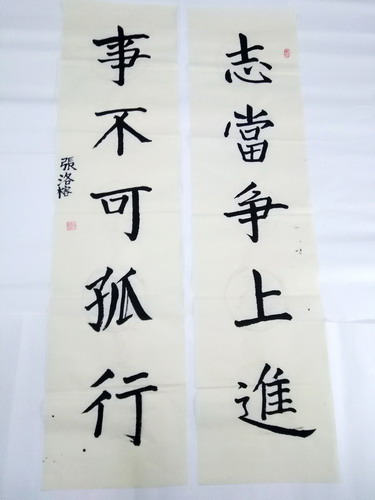 志當争上進
事不可孤行
張洛榕